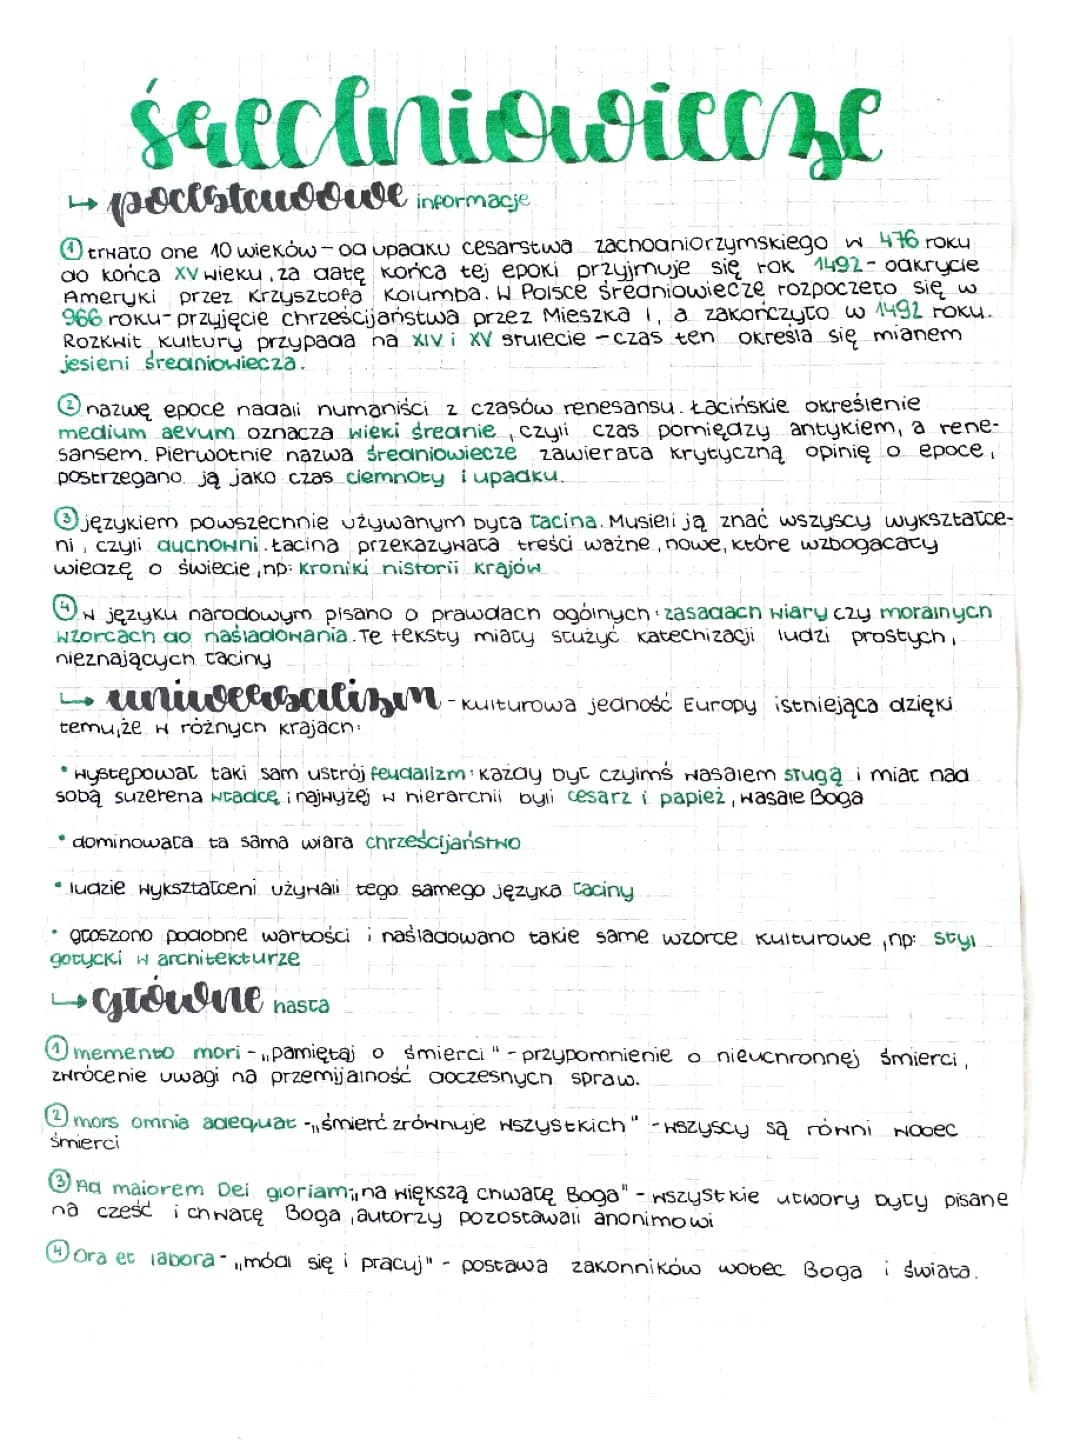 średniowiecze
↳ podstawowe informacje
① trwało one 10 wieków - od upadku cesarstwa zachodniorzymskiego w 476 roku
do końca XV wieku, za datę końca tej epoki przyjmuje się rok 1492 - odkrycie
Ameryki przez Krzysztofa Kolumba. W Polsce średniowiecze rozpoczęło się w
966 roku - przyjęcie chrześcijaństwa przez Mieszka I, a zakończyło w 1492 roku.
Rozkwit kultury przypada na XIV i XV stulecie - czas ten określa się mianem
jesieni średniowiecza.
② nazwę epoce nadali humaniści z czasów renesansu. Łacińskie określenie
medium aevum oznacza wieki średnie, czyli czas pomiędzy antykiem, a rene-
sansem. Pierwotnie nazwa średniowiecze zawierała krytyczną opinię o epoce,
postrzegano ją jako czas ciemnoty i upadku.
③ językiem powszechnie używanym była łacina. Musieli ją znać wszyscy wykształce-
ni, czyli duchowni. Łacina przekazywała treści ważne, nowe, które wzbogacały
wiedzę o świecie, np: kroniki historii krajów
④ w języku narodowym pisano o prawdach ogólnych: zasadach wiary czy moralnych
wzorcach do naśladowania. Te teksty miały służyć katechizacji ludzi prostych,
nieznających łaciny
↳ uniwersalizm - kulturowa jedność Europy istniejąca dzięki
temu, że w różnych krajach:
• występował taki sam ustrój feudalizm: każdy był czyimś wasalem sługą i miał nad
sobą suzerena władcę i najwyżej w hierarchii byli cesarz i papież, wasale Boga
• dominowała ta sama wiara chrześcijaństwo
• ludzie wykształceni używali tego samego języka łaciny
• głoszono podobne wartości i naśladowano takie same wzorce kulturowe, np: styl
gotycki w architekturze
↳ główne hasła
① memento mori - „pamiętaj o śmierci" - przypomnienie o nieuchronnej śmierci,
zwrócenie uwagi na przemijalność doczesnych spraw.
② mors omnia adequat - „śmierć zrównuje wszystkich" - wszyscy są równi wobec
śmierci
③ Ad maiorem Dei gloriam „na większą chwałę Boga" - wszystkie utwory były pisane
na cześć i chwałę Boga, autorzy pozostawali anonimowi
④ Ora et labora - „módl się i pracuj" - postawa zakonników wobec Boga i świata.